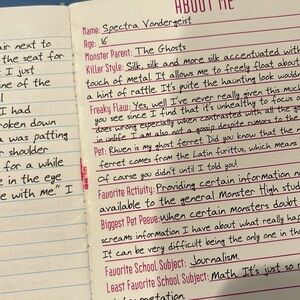 air next to
the seat for
I just
one of the
I had
roken down
a was patting
r shoulder
for a while
e in the eye
e with me." I
ABOUT ME
Name: Spectra Vondergeist
Age: 16
Monster Parent: The Ghosts
Killer Style: Silk, silk and more silk accentuated with
touch of metal. It allows me to freely float about
a hint of rattle. It's quite the haunting look would
Freaky Flaw: Yes, well I've never really given this much
you see since I find that it's unhealthy to focus
does wrong especially when contrasted with all the
in unlife. I am also not a gossip despite rumors to the
Pet: Rhuen is my ghost ferret. Did you know that the
ferret comes from the Latin furittus, which means
Of course you didn't until I told you!
Favorite Activity: Providing certain information
available to the general Monster High stud
Biggest Pet Peeve: When certain monsters doubt
screams information I have about what really ha
It can be very difficult being the only one in th
Favorite School Subject: Journalism.
Least Favorite School Subject: Math. It's just so